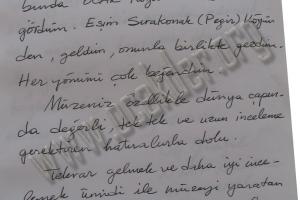 bunda
gördüm. Eşim Sırakonak (Peçir) Köyün
den, geldim, onunla birlikte gezdim.
Her yönünü çok beğendim.
Müzeniz özellikle dünya çapın-
da değerli, tek tek ve uzun inceleme
gerektiren hatıralarla dolu.
Tekrar gelmek ve daha iyi ince-
lemek ümidi ile müzeyi yaratan